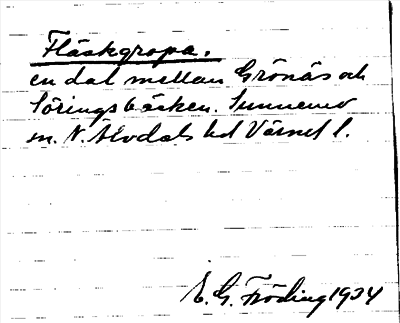 Fläskgropa.
en dal mellan Grönäs och
Söringsbäcken. Sunnemo
sn. N. Älvdals hd Värml.
E. G. Fröding 1934